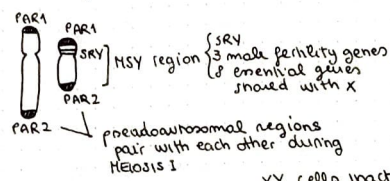 PAR1
PAR1
SRY
MSY region
SRY
3 male fertility genes
8 essential genes
shared with X
PAR2
PAR2
pseudoautosomal regions
pair with each other during
MEIOSIS I